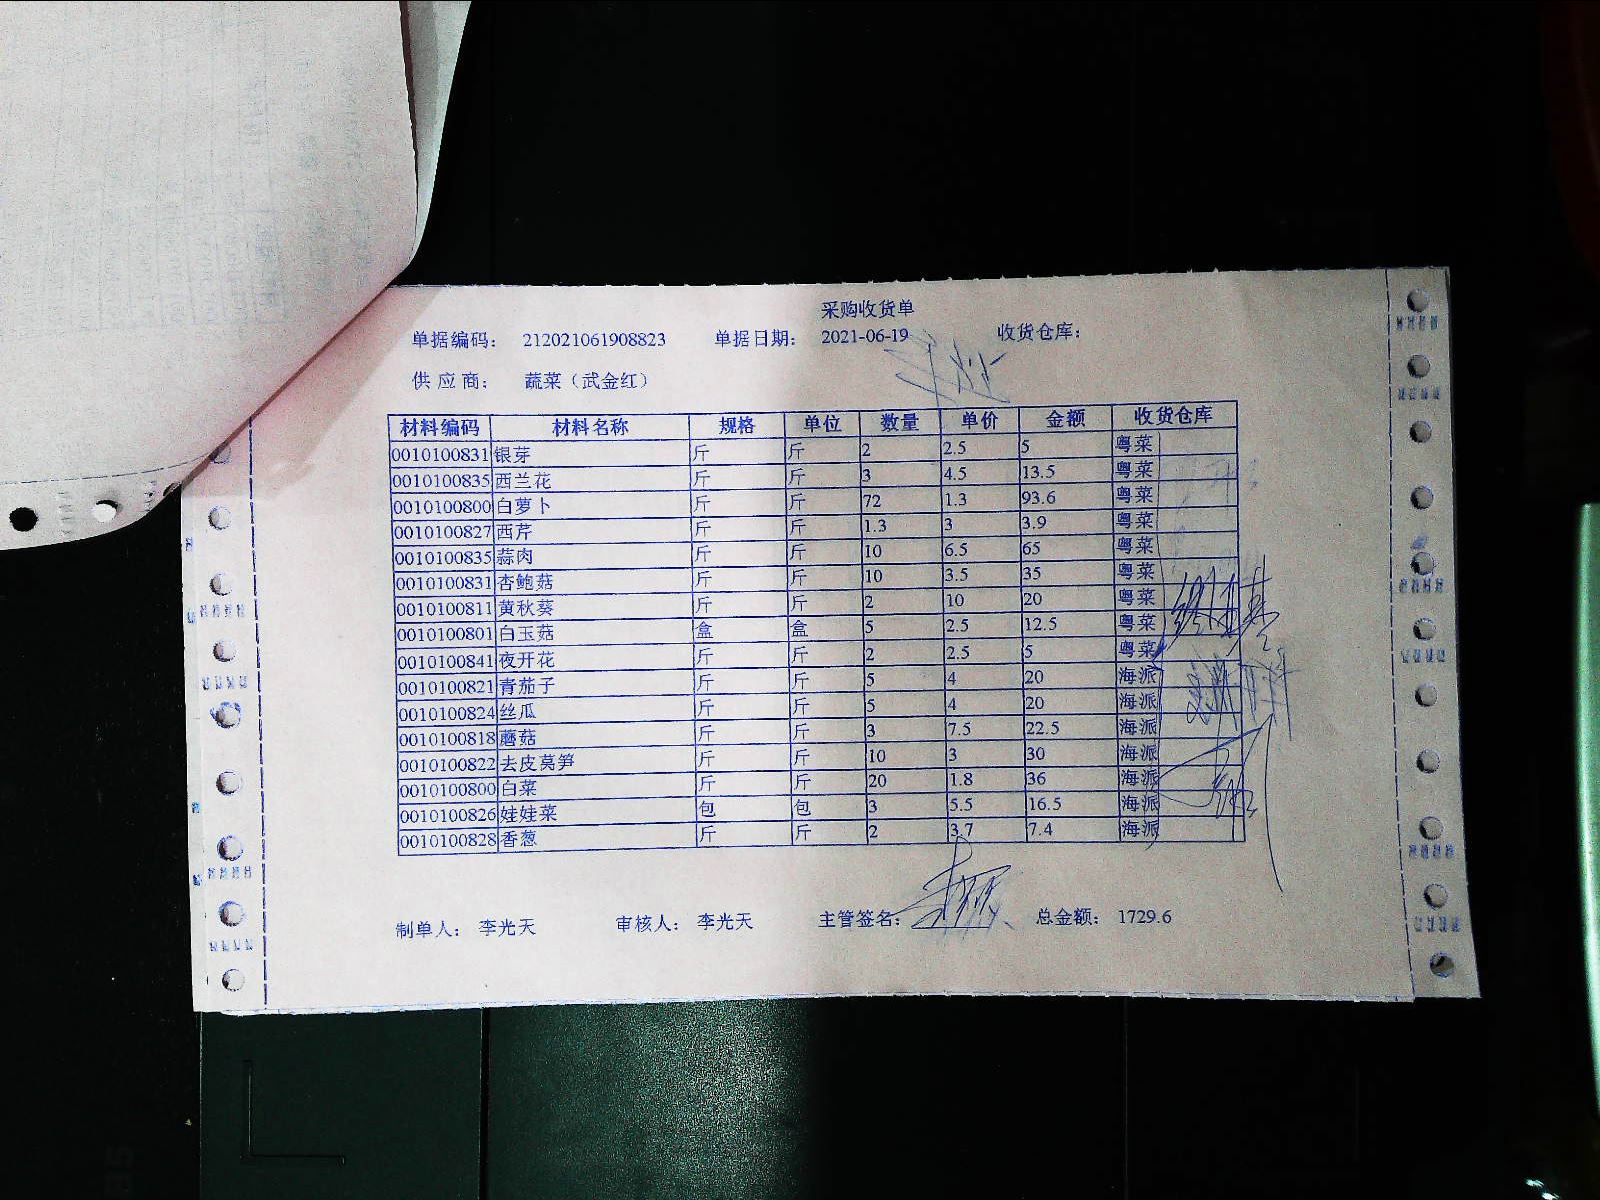 采购收货单
单据编码： 212021061908823 单据日期： 2021-06-19 收货仓库：
供 应 商： 蔬菜（武金红）
材料编码 材料名称 规格 单位 数量 单价 金额 收货仓库
0010100831 银芽 斤 斤 2 2.5 5 粤菜
0010100835 西兰花 斤 斤 3 4.5 13.5 粤菜
0010100800 白萝卜 斤 斤 72 1.3 93.6 粤菜
0010100827 西芹 斤 斤 1.3 3 3.9 粤菜
0010100835 蒜肉 斤 斤 10 6.5 65 粤菜
0010100831 杏鲍菇 斤 斤 10 3.5 35 粤菜
0010100811 黄秋葵 斤 斤 2 10 20 粤菜
0010100801 白玉菇 盒 盒 5 2.5 12.5 粤菜
0010100841 夜开花 斤 斤 2 2.5 5 粤菜
0010100821 青茄子 斤 斤 5 4 20 海派
0010100824 丝瓜 斤 斤 5 4 20 海派
0010100818 蘑菇 斤 斤 3 7.5 22.5 海派
0010100822 去皮莴笋 斤 斤 10 3 30 海派
0010100800 白菜 斤 斤 20 1.8 36 海派
0010100826 娃娃菜 包 包 3 5.5 16.5 海派
0010100828 香葱 斤 斤 2 3.7 7.4 海派
制单人： 李光天 审核人： 李光天 主管签名： 总金额： 1729.6